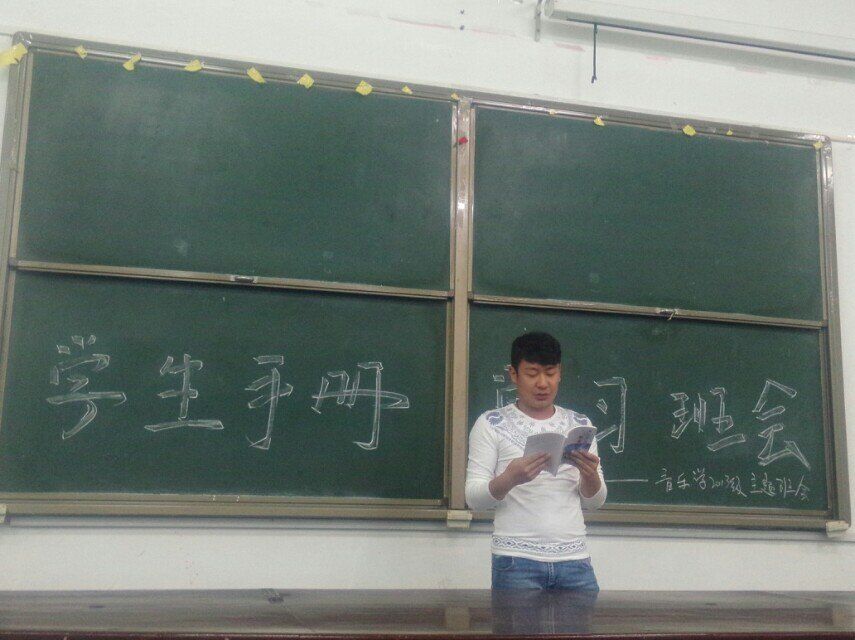 学生手册 习班会
——音乐学2013级主题班会